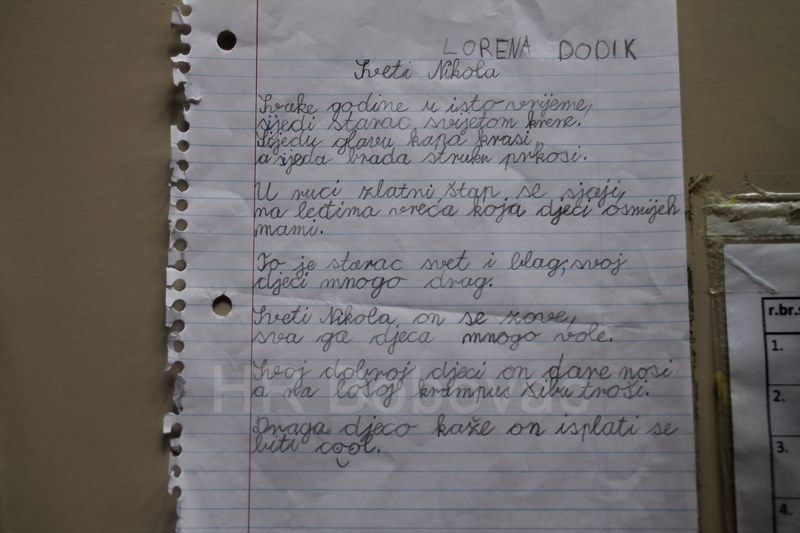 LORENA DODIK
Sveti Nikola
Svake godine u isto vrijeme,
sijedi starac svijetom krene.
Sijedu glavu kapa krasi,
a sijeda brada struku prkosi.
U ruci zlatni štap se sjaji,
na leđima vreća koja djeci osmijeh
mami.
To je starac svet i blag, svoj
djeci mnogo drag.
Sveti Nikola on se zove,
sva ga djeca mnogo vole.
Svoj dobroj djeci on dare nosi
a na lošoj krampus šibu troši.
Draga djeco kaže on isplati se
biti cool.
HR Bobovac
r.br.
1.
2.
3.
4.